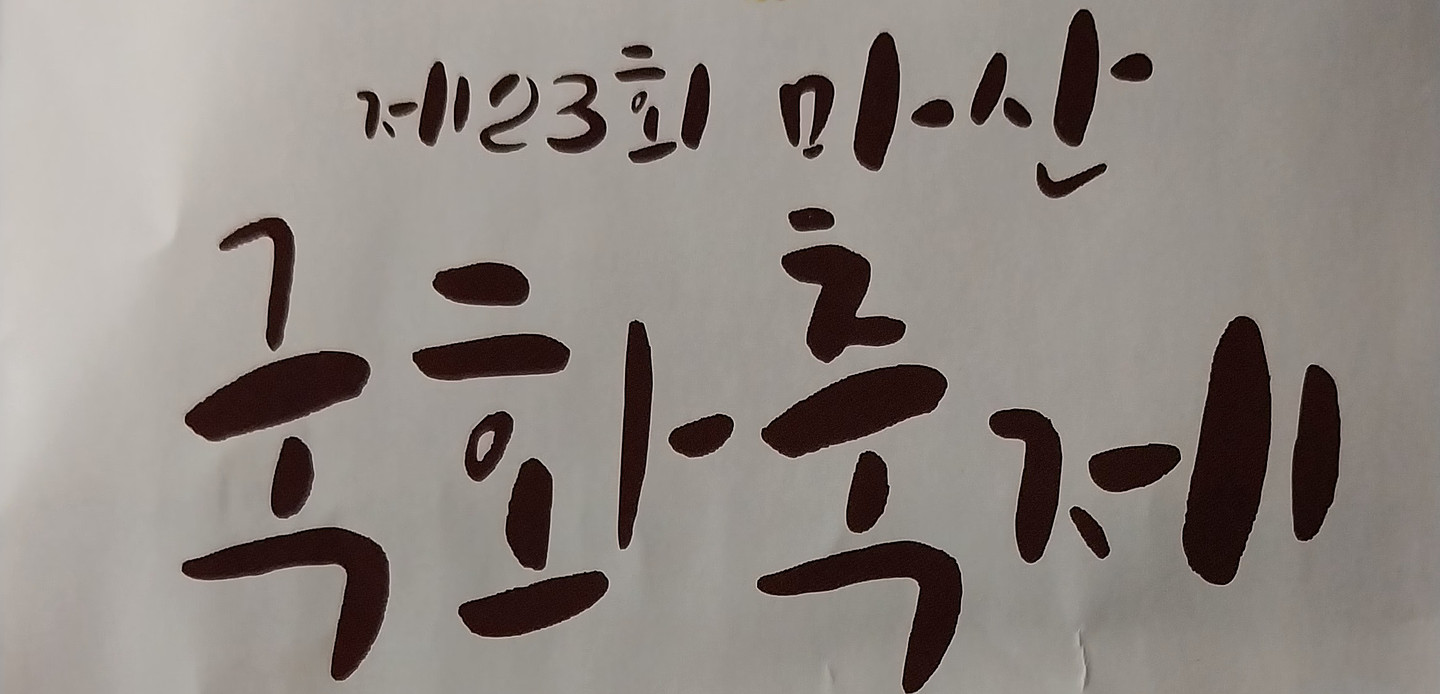 제23회 마산
국화축제